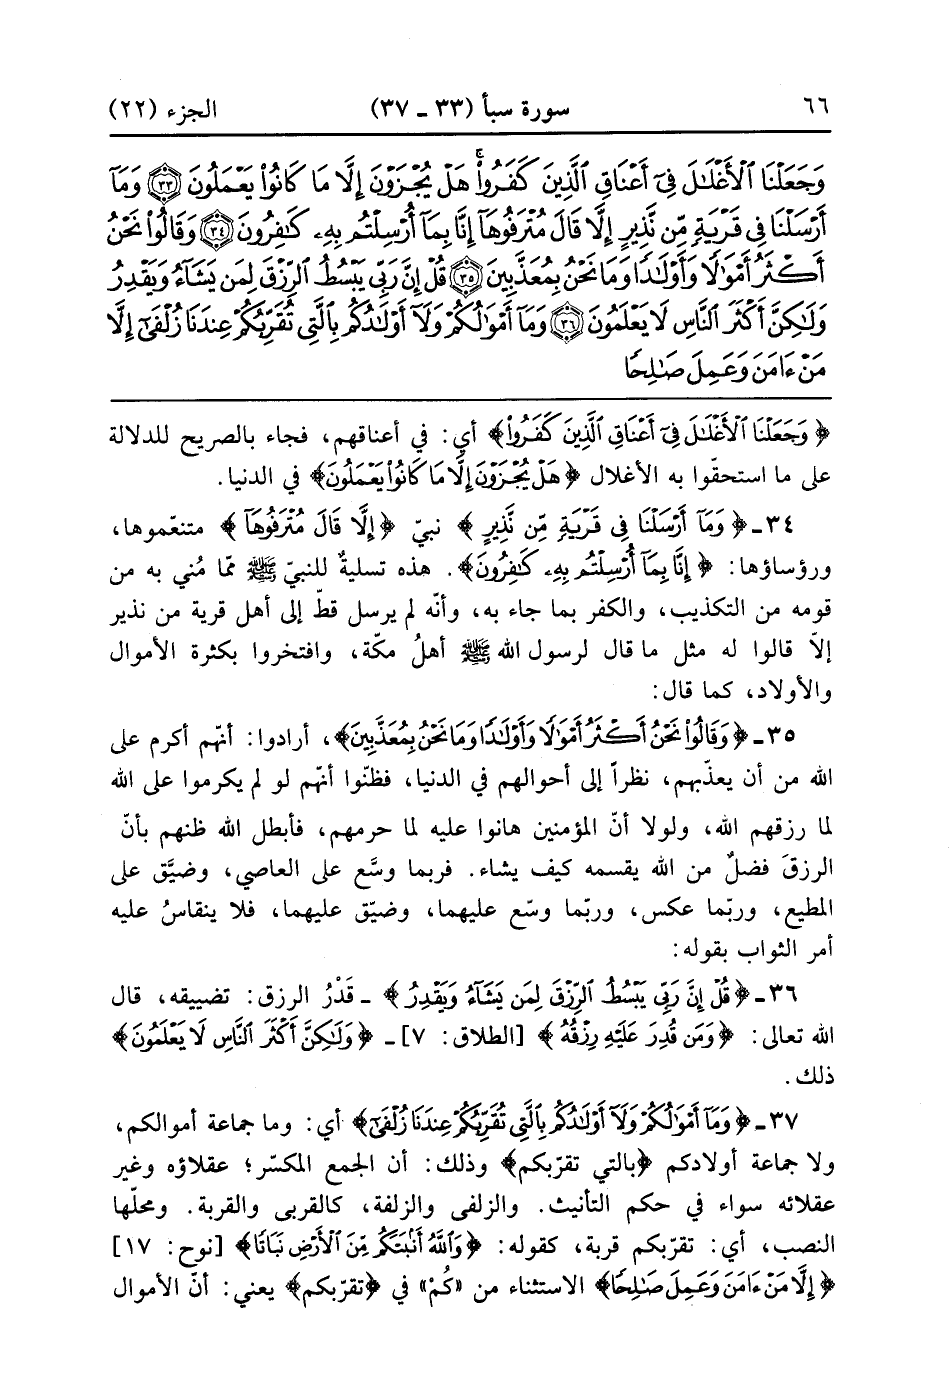 ٦٦ سورة سبأ (٣٣ ـ ٣٧) الجزء (٢٢)
وَجَعَلْنَا ٱلْأَغْلَٰلَ فِىٓ أَعْنَاقِ ٱلَّذِينَ كَفَرُوا۟ ۚ هَلْ يُجْزَوْنَ إِلَّا مَا كَانُوا۟ يَعْمَلُونَ ﴿٣٣﴾ وَمَآ
أَرْسَلْنَا فِى قَرْيَةٍ مِّن نَّذِيرٍ إِلَّا قَالَ مُتْرَفُوهَآ إِنَّا بِمَآ أُرْسِلْتُم بِهِۦ كَٰفِرُونَ ﴿٣٤﴾ وَقَالُوا۟ نَحْنُ
أَكْثَرُ أَمْوَٰلًا وَأَوْلَٰدًا وَمَا نَحْنُ بِمُعَذَّبِينَ ﴿٣٥﴾ قُلْ إِنَّ رَبِّى يَبْسُطُ ٱلرِّزْقَ لِمَن يَشَآءُ وَيَقْدِرُ
وَلَٰكِنَّ أَكْثَرَ ٱلنَّاسِ لَا يَعْلَمُونَ ﴿٣٦﴾ وَمَآ أَمْوَٰلُكُمْ وَلَآ أَوْلَٰدُكُم بِٱلَّتِى تُقَرِّبُكُمْ عِندَنَا زُلْفَىٰٓ إِلَّا
مَنْ ءَامَنَ وَعَمِلَ صَٰلِحًا
﴿وَجَعَلْنَا ٱلْأَغْلَٰلَ فِىٓ أَعْنَاقِ ٱلَّذِينَ كَفَرُوا۟﴾ أي: في أعناقهم، فجاء بالصريح للدلالة
على ما استحقّوا به الأغلال ﴿هَلْ يُجْزَوْنَ إِلَّا مَا كَانُوا۟ يَعْمَلُونَ﴾ في الدنيا.
٣٤ـ ﴿وَمَآ أَرْسَلْنَا فِى قَرْيَةٍ مِّن نَّذِيرٍ﴾ نبيّ ﴿إِلَّا قَالَ مُتْرَفُوهَآ﴾ متنعّموها،
ورؤساؤها: ﴿إِنَّا بِمَآ أُرْسِلْتُم بِهِۦ كَٰفِرُونَ﴾. هذه تسليةٌ للنبيّ ﷺ ممّا مُني به من
قومه من التكذيب، والكفر بما جاء به، وأنّه لم يرسل قطّ إلى أهل قرية من نذير
إلاّ قالوا له مثل ما قال لرسول الله ﷺ أهلُ مكّة، وافتخروا بكثرة الأموال
والأولاد، كما قال:
٣٥ـ ﴿وَقَالُوا۟ نَحْنُ أَكْثَرُ أَمْوَٰلًا وَأَوْلَٰدًا وَمَا نَحْنُ بِمُعَذَّبِينَ﴾، أرادوا: أنّهم أكرم على
الله من أن يعذّبهم، نظراً إلى أحوالهم في الدنيا، فظنّوا أنّهم لو لم يكرموا على الله
لما رزقهم الله، ولولا أنّ المؤمنين هانوا عليه لما حرمهم، فأبطل الله ظنهم بأنّ
الرزقَ فضلٌ من الله يقسمه كيف يشاء. فربما وسَّع على العاصي، وضيَّق على
المطيع، وربّما عكس، وربّما وسّع عليهما، وضيّق عليهما، فلا ينقاسُ عليه
أمر الثواب بقوله:
٣٦ـ ﴿قُلْ إِنَّ رَبِّى يَبْسُطُ ٱلرِّزْقَ لِمَن يَشَآءُ وَيَقْدِرُ﴾ ـ قَدْرُ الرزق: تضييقه، قال
الله تعالى: ﴿وَمَن قُدِرَ عَلَيْهِ رِزْقُهُۥ﴾ [الطلاق: ٧] ـ ﴿وَلَٰكِنَّ أَكْثَرَ ٱلنَّاسِ لَا يَعْلَمُونَ﴾
ذلك.
٣٧ـ ﴿وَمَآ أَمْوَٰلُكُمْ وَلَآ أَوْلَٰدُكُم بِٱلَّتِى تُقَرِّبُكُمْ عِندَنَا زُلْفَىٰٓ﴾ أي: وما جماعة أموالكم،
ولا جماعة أولادكم ﴿بالتي تقرّبكم﴾ وذلك: أن الجمع المكسّر؛ عقلاؤه وغير
عقلائه سواء في حكم التأنيث. والزلفى والزلفة، كالقربى والقربة. ومحلّها
النصب، أي: تقرّبكم قربة، كقوله: ﴿وَٱللَّهُ أَنۢبَتَكُم مِّنَ ٱلْأَرْضِ نَبَاتًا﴾ [نوح: ١٧]
﴿إِلَّا مَنْ ءَامَنَ وَعَمِلَ صَٰلِحًا﴾ الاستثناء من «كُمْ» في ﴿تقرّبكم﴾ يعني: أنّ الأموال